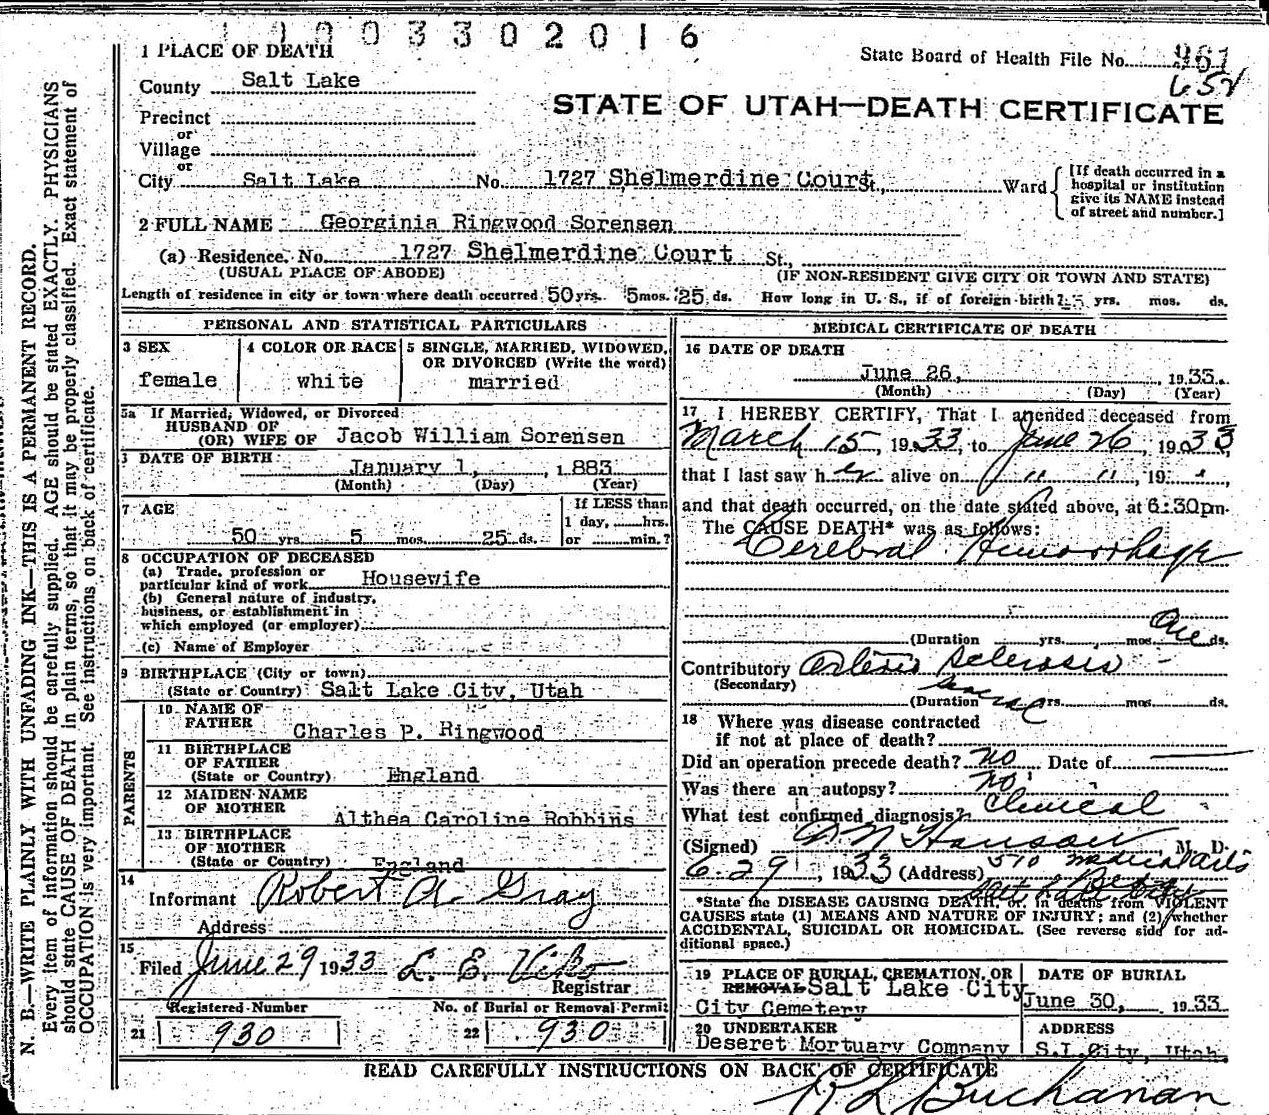 1 1 0 0 3 3 0 2 0 1 6
1 PLACE OF DEATH
State Board of Health File No. 961
652
County Salt Lake
STATE OF UTAH—DEATH CERTIFICATE
Precinct
or
Village
or
City Salt Lake No. 1727 Shelmerdine Court St., Ward
[If death occurred in a
hospital or institution
give its NAME instead
of street and number.]
2 FULL NAME Georginia Ringwood Sorensen
(a) Residence. No. 1727 Shelmerdine Court St.,
(USUAL PLACE OF ABODE) (IF NON-RESIDENT GIVE CITY OR TOWN AND STATE)
Length of residence in city or town where death occurred 50 yrs. 5 mos. 25 ds. How long in U. S., if of foreign birth? yrs. mos. ds.
PERSONAL AND STATISTICAL PARTICULARS
3 SEX
female
4 COLOR OR RACE
white
5 SINGLE, MARRIED, WIDOWED,
OR DIVORCED (Write the word)
married
5a If Married, Widowed, or Divorced
HUSBAND OF
(OR) WIFE OF Jacob William Sorensen
DATE OF BIRTH
January 1, 1883
(Month) (Day) (Year)
7 AGE
50 yrs. 5 mos. 25 ds.
If LESS than
1 day, hrs.
or min.?
8 OCCUPATION OF DECEASED
(a) Trade, profession or
particular kind of work Housewife
(b) General nature of industry,
business, or establishment in
which employed (or employer)
(c) Name of Employer
9 BIRTHPLACE (City or town)
(State or Country) Salt Lake City, Utah
PARENTS
10 NAME OF
FATHER
Charles P. Ringwood
11 BIRTHPLACE
OF FATHER
(State or Country) England
12 MAIDEN NAME
OF MOTHER
Althea Caroline Robbins
13 BIRTHPLACE
OF MOTHER
(State or Country) England
14
Informant Robert A. Gray
Address
15
Filed June 29 1933 L. E. Viko
Registrar
Registered Number
21 930
No. of Burial or Removal Permit
22 930
MEDICAL CERTIFICATE OF DEATH
16 DATE OF DEATH
June 26, 1933.
(Month) (Day) (Year)
17 I HEREBY CERTIFY, That I attended deceased from
March 15, 1933, to June 26, 1933,
that I last saw her alive on " ", 19 "
and that death occurred, on the date stated above, at 6:30pm.
The CAUSE DEATH* was as follows:
Cerebral Hemorrhage
(Duration yrs. mos. One ds.
Contributory Arterio Sclerosis
(Secondary)
several
(Duration yrs. mos. ds.
18 Where was disease contracted
if not at place of death?
Did an operation precede death? no Date of
Was there an autopsy? no
What test confirmed diagnosis? Clinical
(Signed) Hanson M. D.
6-29, 1933 (Address) 510 Medical Arts
*State the DISEASE CAUSING DEATH, or, in deaths from VIOLENT
CAUSES state (1) MEANS AND NATURE OF INJURY; and (2) whether
ACCIDENTAL, SUICIDAL OR HOMICIDAL. (See reverse side for ad-
ditional space.)
19 PLACE OF BURIAL, CREMATION, OR
REMOVAL Salt Lake City
City Cemetery
DATE OF BURIAL
June 30, 1933
20 UNDERTAKER
Deseret Mortuary Company
ADDRESS
S.L.City, Utah.
READ CAREFULLY INSTRUCTIONS ON BACK OF CERTIFICATE
R L Buchanan
N. B.—WRITE PLAINLY WITH UNFADING INK—THIS IS A PERMANENT RECORD.
Every item of information should be carefully supplied. AGE should be stated EXACTLY. PHYSICIANS
should state CAUSE OF DEATH in plain terms, so that it may be properly classified. Exact statement of
OCCUPATION is very important. See instructions on back of certificate.